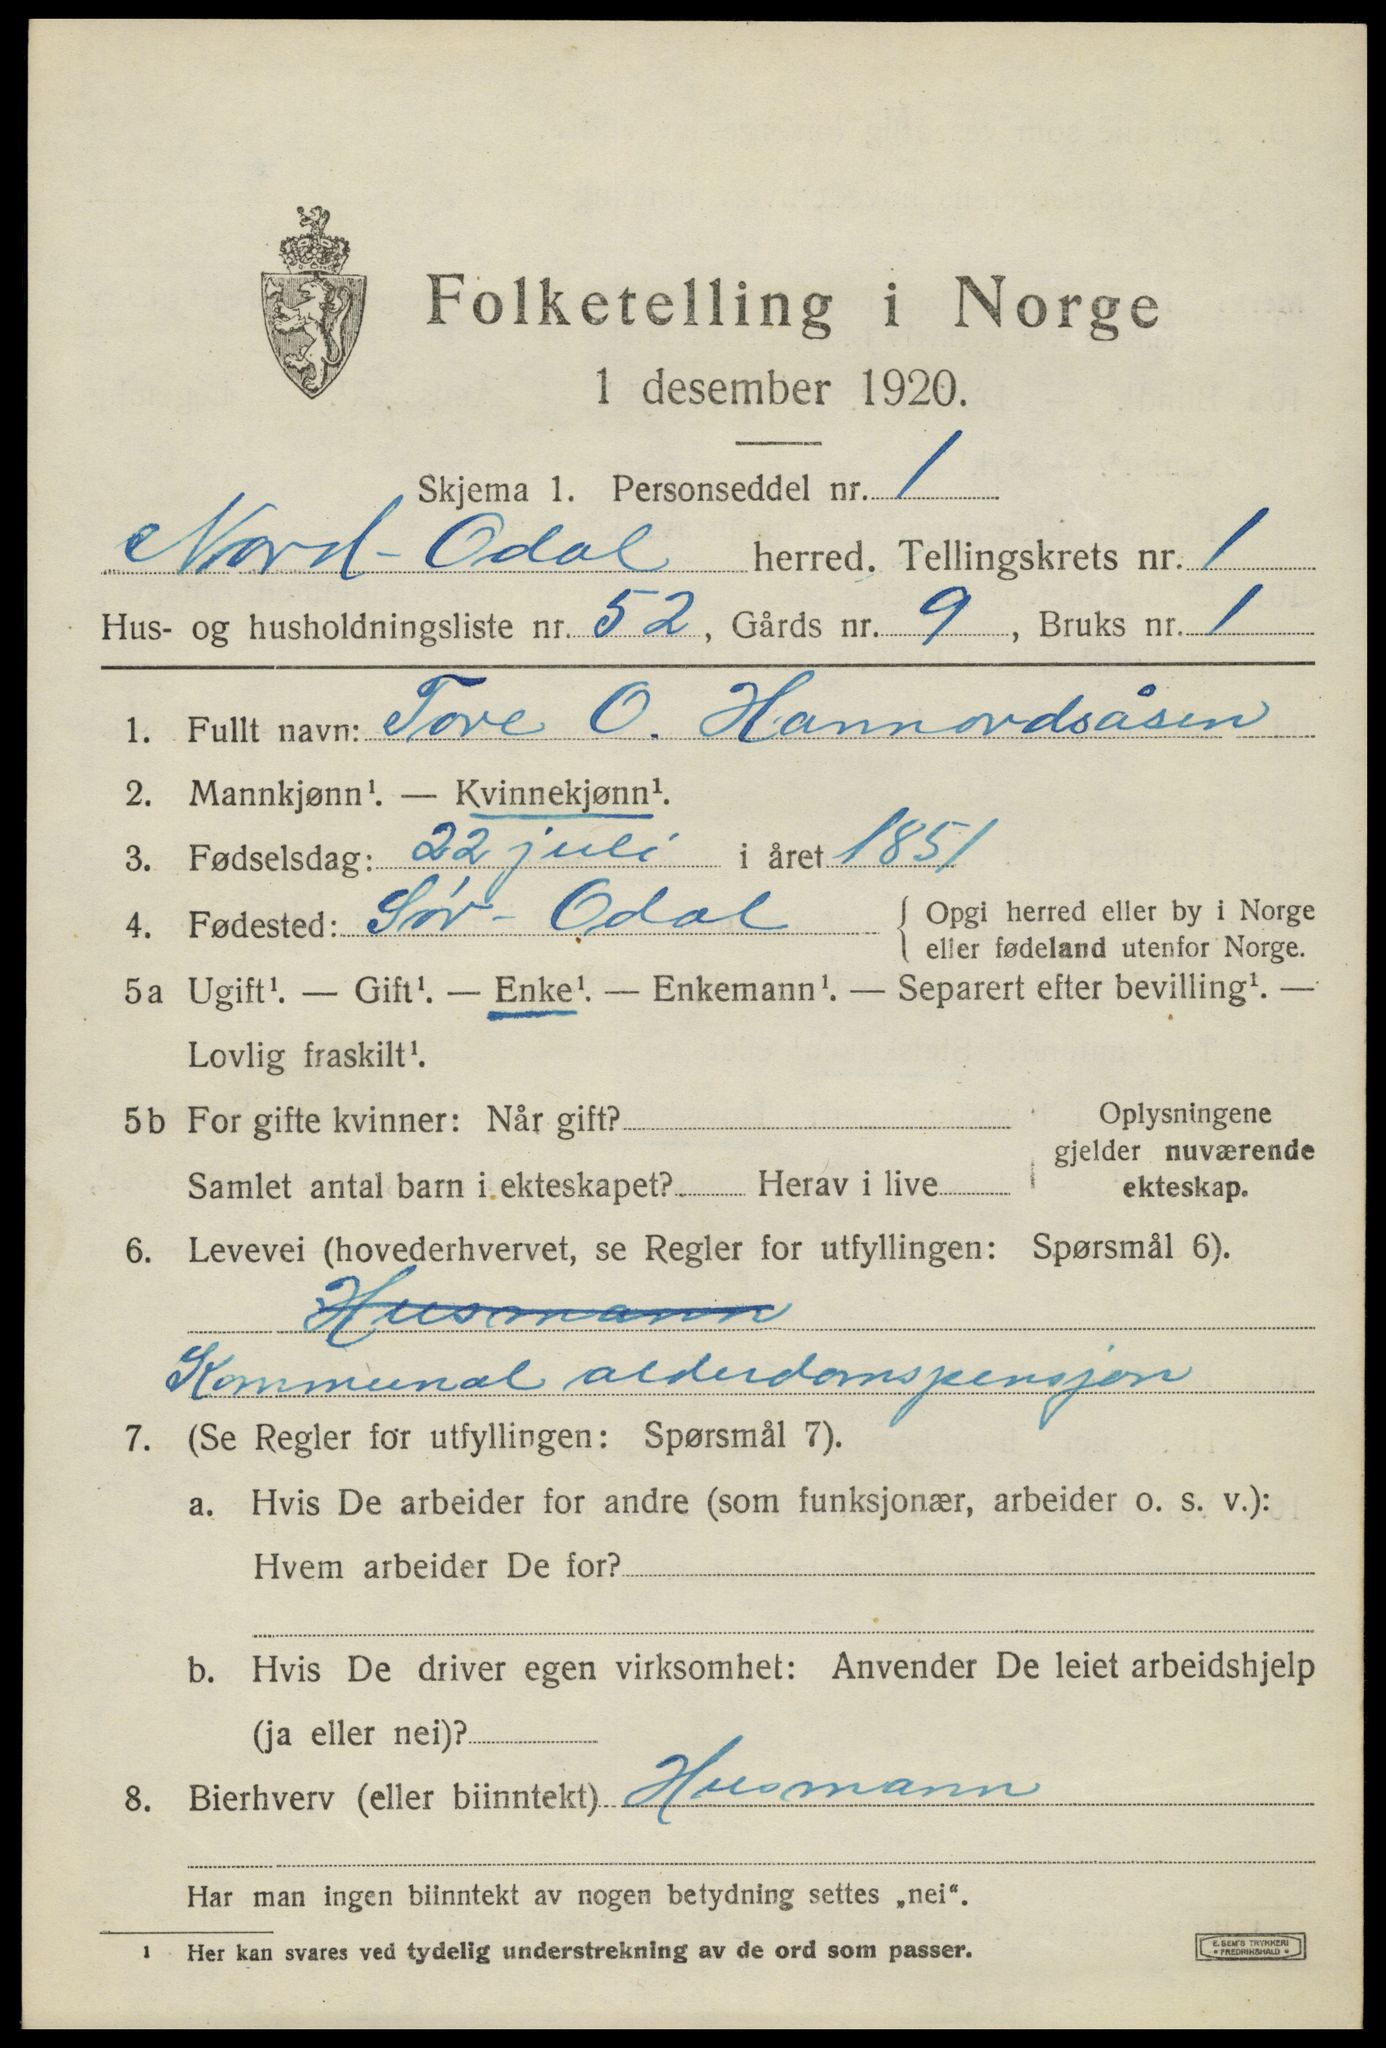 Folketelling i Norge
1 desember 1920.
Skjema 1. Personseddel nr. 1
Nord-Odal herred. Tellingskrets nr. 1
Hus- og husholdningsliste nr. 52, Gårds nr. 9, Bruks nr. 1
1. Fullt navn: Tore O. Hannordsåsen
2. Mannkjønn¹. — Kvinnekjønn¹.
3. Fødselsdag: 22 juli i året 1851
4. Fødested: Sør-Odal { Opgi herred eller by i Norge
eller fødeland utenfor Norge.
5a Ugift¹. — Gift¹. — Enke¹. — Enkemann¹. — Separert efter bevilling¹. —
Lovlig fraskilt¹.
5b For gifte kvinner: Når gift?
Samlet antal barn i ekteskapet? Herav i live
Oplysningene
gjelder nuværende
ekteskap.
6. Levevei (hovederhvervet, se Regler for utfyllingen: Spørsmål 6).
Husmann
Kommunal alderdomspensjon
7. (Se Regler for utfyllingen: Spørsmål 7).
a. Hvis De arbeider for andre (som funksjonær, arbeider o. s. v.):
Hvem arbeider De for?
b. Hvis De driver egen virksomhet: Anvender De leiet arbeidshjelp
(ja eller nei)?
8. Bierhverv (eller biinntekt) Husmann
Har man ingen biinntekt av nogen betydning settes „nei“.
¹ Her kan svares ved tydelig understrekning av de ord som passer.
E. SEM'S TRYKKERI
• FREDRIKSHALD •